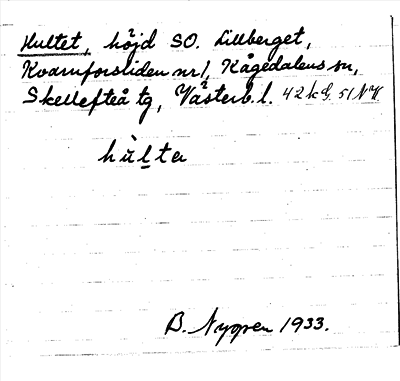 Hultet, höjd SO. Lillberget,
Kvarnforsliden nr 1, Kågedalens sn,
Skellefteå tg, Västerb. l. 42 k G. 51 N
hùlta
B. Nygren 1933.